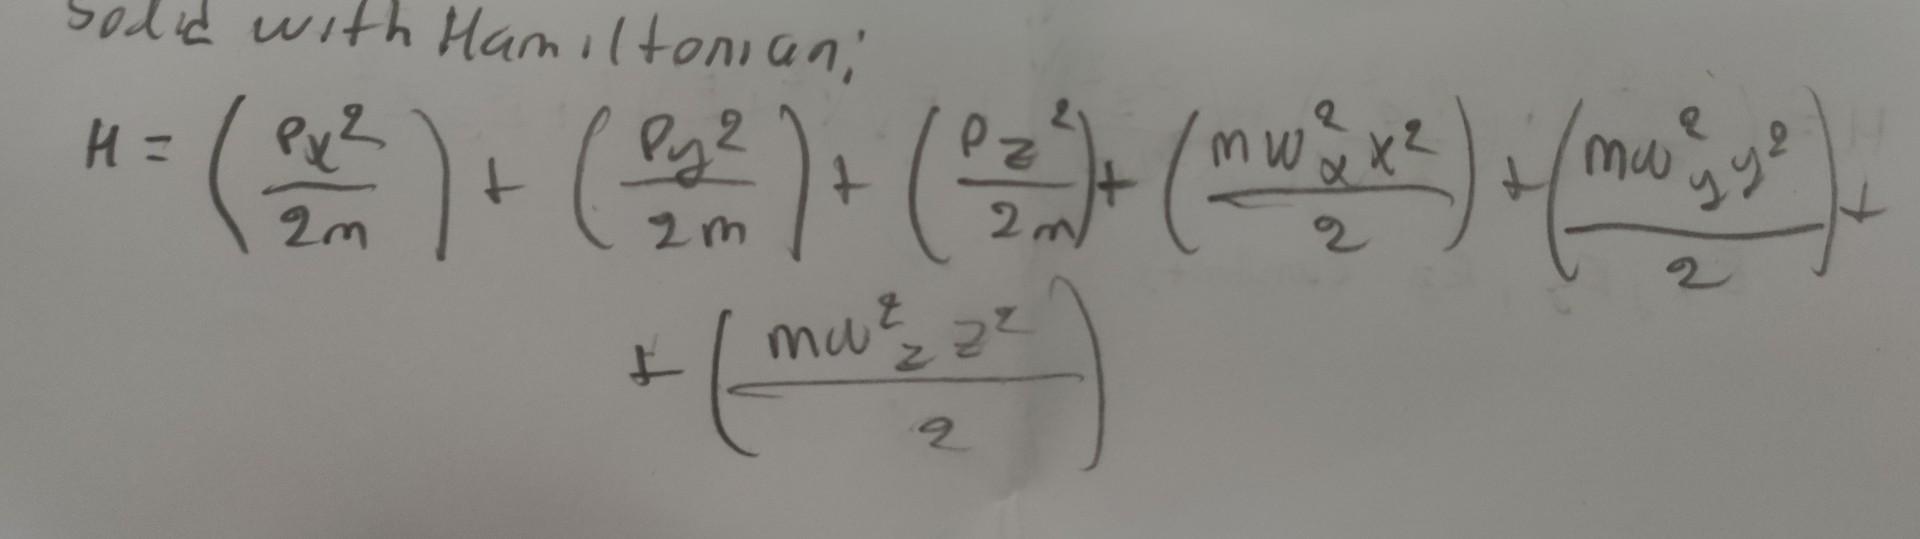 solid with Hamiltonian;
H = (Px²/2m) + (Py²/2m) + (Pz²/2m) + (mωx²x²/2) + (mωy²y²/2) +
+ (mωz²z²/2)